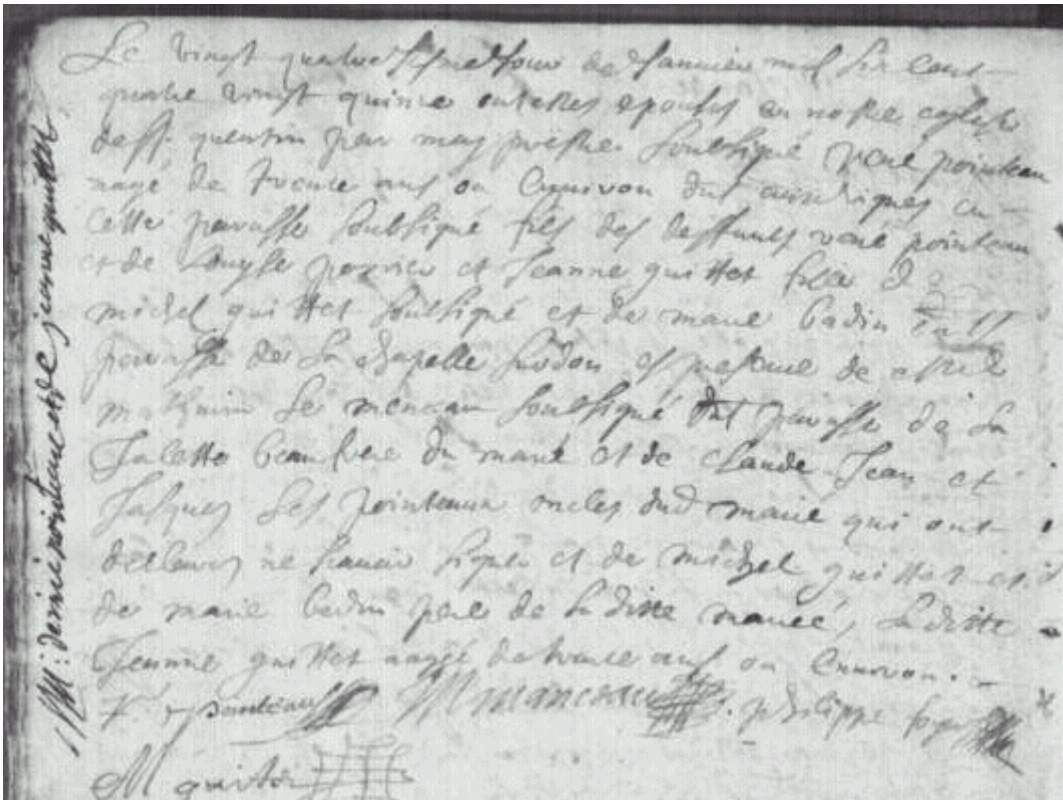 Le vingt quatre jour de Janvier mil six cens
quatre vingt quinze ont estes epousés en nostre eglise
de St quentin par moy prestre soubsigné rené pointeau
aagé de trente ans ou environ
cette paroisse soubsigné fils des deffunts rené pointeau
et de Louyse perrier et Jeanne quittet fille
michel quittet soubsigné et de marie badin
paroisse de La chapelle hudon es presence de
mathurin Le menceau soubsigné paroisse de La
Jalette beau frere du marié et de claude Jean et
Jacques Les pointeaux oncles dud marié qui ont
declarés ne scavoir signer et de michel quittet et
de marie badin pere de La ditte mariée, La ditte
Jeanne quittet aagée de trente ans ou environ.
r pointeau M manceau philippe
M quitet
M: de rené pointeau et de jeanne quittet